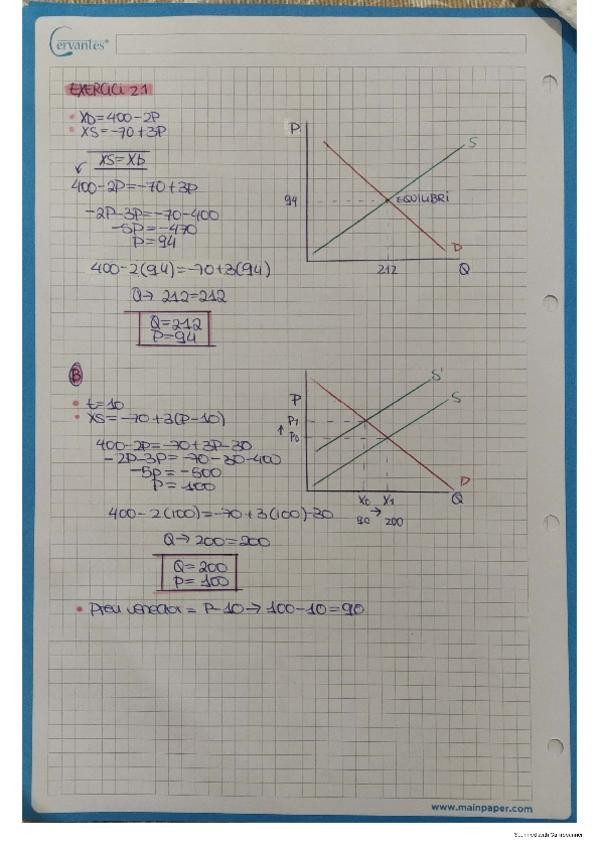 Cervantes
EXERCICI 2.1
• XD=400-2P
• XS=-70+3P
XS=XD
400-2P=-70+3P
-2P-3P=-70-400
-5P=-470
P=94
400-2(94)=-70+3(94)
Q→ 212=212
Q=212
P=94
P
S
94
EQUILIBRI
D
212
Q
B
• t=10
• XS=-70+3(P-10)
400-2P=-70+3P-30
-2P-3P=-70-30-400
-5P=-500
P=100
400-2(100)=-70+3(100)-30
Q→200=200
Q=200
P=100
• Preu venedor = P-10→100-10=90
P
S'
S
P1
↑ P0
D
X0 X1
Q
→
90 200
www.mainpaper.com